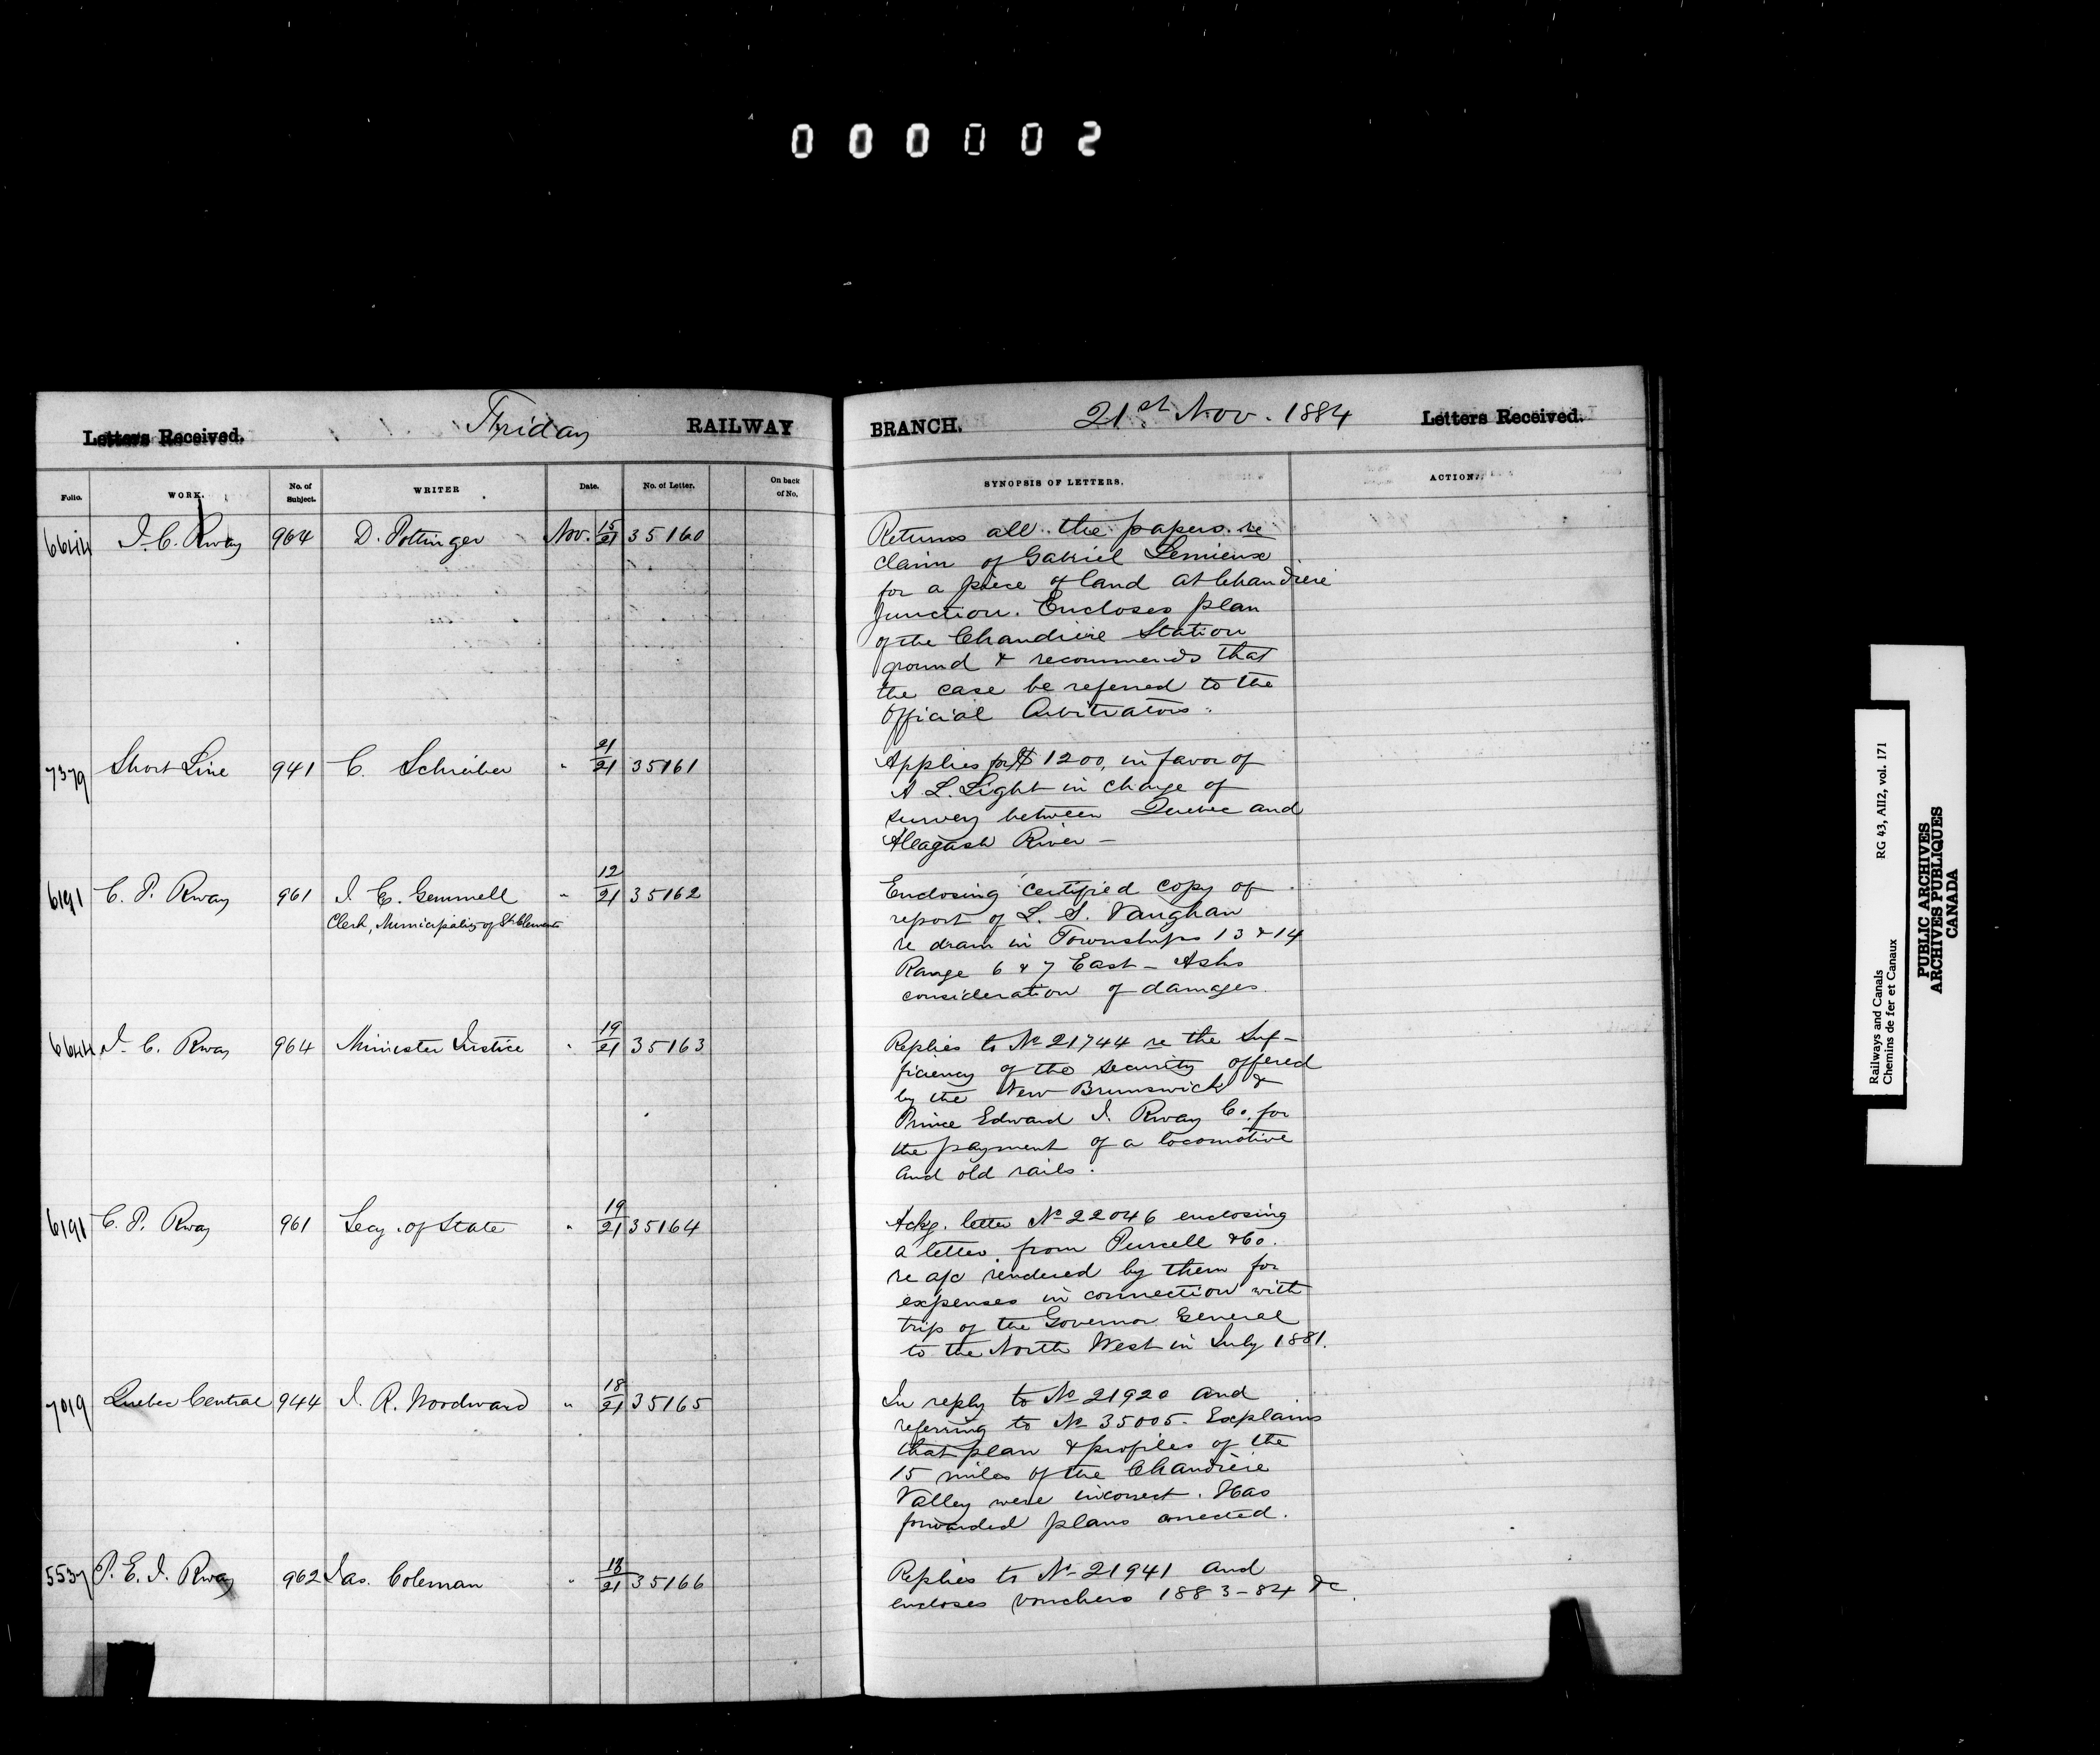 000002
Letters Received. Friday RAILWAY BRANCH. 21st Nov. 1884 Letters Received.
Folio. WORK. No. of Subject. WRITER Date. No. of Letter. On back of No. SYNOPSIS OF LETTERS. ACTION.
6644 I. C. Rway 964 D. Pottinger Nov. 15/21 35160 Returns all the papers re
claim of Gabriel Lemieux
for a piece of land at Chaudiere
Junction. Encloses plan
of the Chaudiere Station
ground & recommends that
the case be referred to the
Official Arbitrators.
7379 Short Line 941 C. Schreiber " 21/21 35161 Applies for $1200, in favor of
A. L. Light in charge of
survey between Quebec and
Aleagash River —
6191 C. P. Rway 961 I. C. Gemmell " 12/21 35162 Enclosing certified copy of
Clerk, Municipality of St. Clements report of L. S. Vaughan
re drain in Townships 13 & 14
Range 6 & 7 East — Asks
consideration of damages.
6644 I. C. Rway 964 Minister Justice " 19/21 35163 Replies to No 21744 re the suf-
ficiency of the security offered
by the New Brunswick &
Prince Edward I. Rway Co. for
the payment of a locomotive
and old rails.
6191 C. P. Rway 961 Secy. of State " 19/21 35164 Ackg. letter No 22046 enclosing
a letter from Purcell & Co.
re a/c rendered by them for
expenses in connection with
trip of the Governor General
to the North West in July 1881.
7019 Quebec Central 944 J. R. Woodward " 18/21 35165 In reply to No 21920 and
referring to No 35005. Explains
that plan & profiles of the
15 miles of the Chaudière
Valley were incorrect. Has
forwarded plans corrected.
5537 P. E. I. Rway 962 Jas. Coleman " 18/21 35166 Replies to No 21941 and
encloses vouchers 1883-84 &c.
Railways and Canals RG 43, AII2, vol. 171
Chemins de fer et Canaux
PUBLIC ARCHIVES
ARCHIVES PUBLIQUES
CANADA